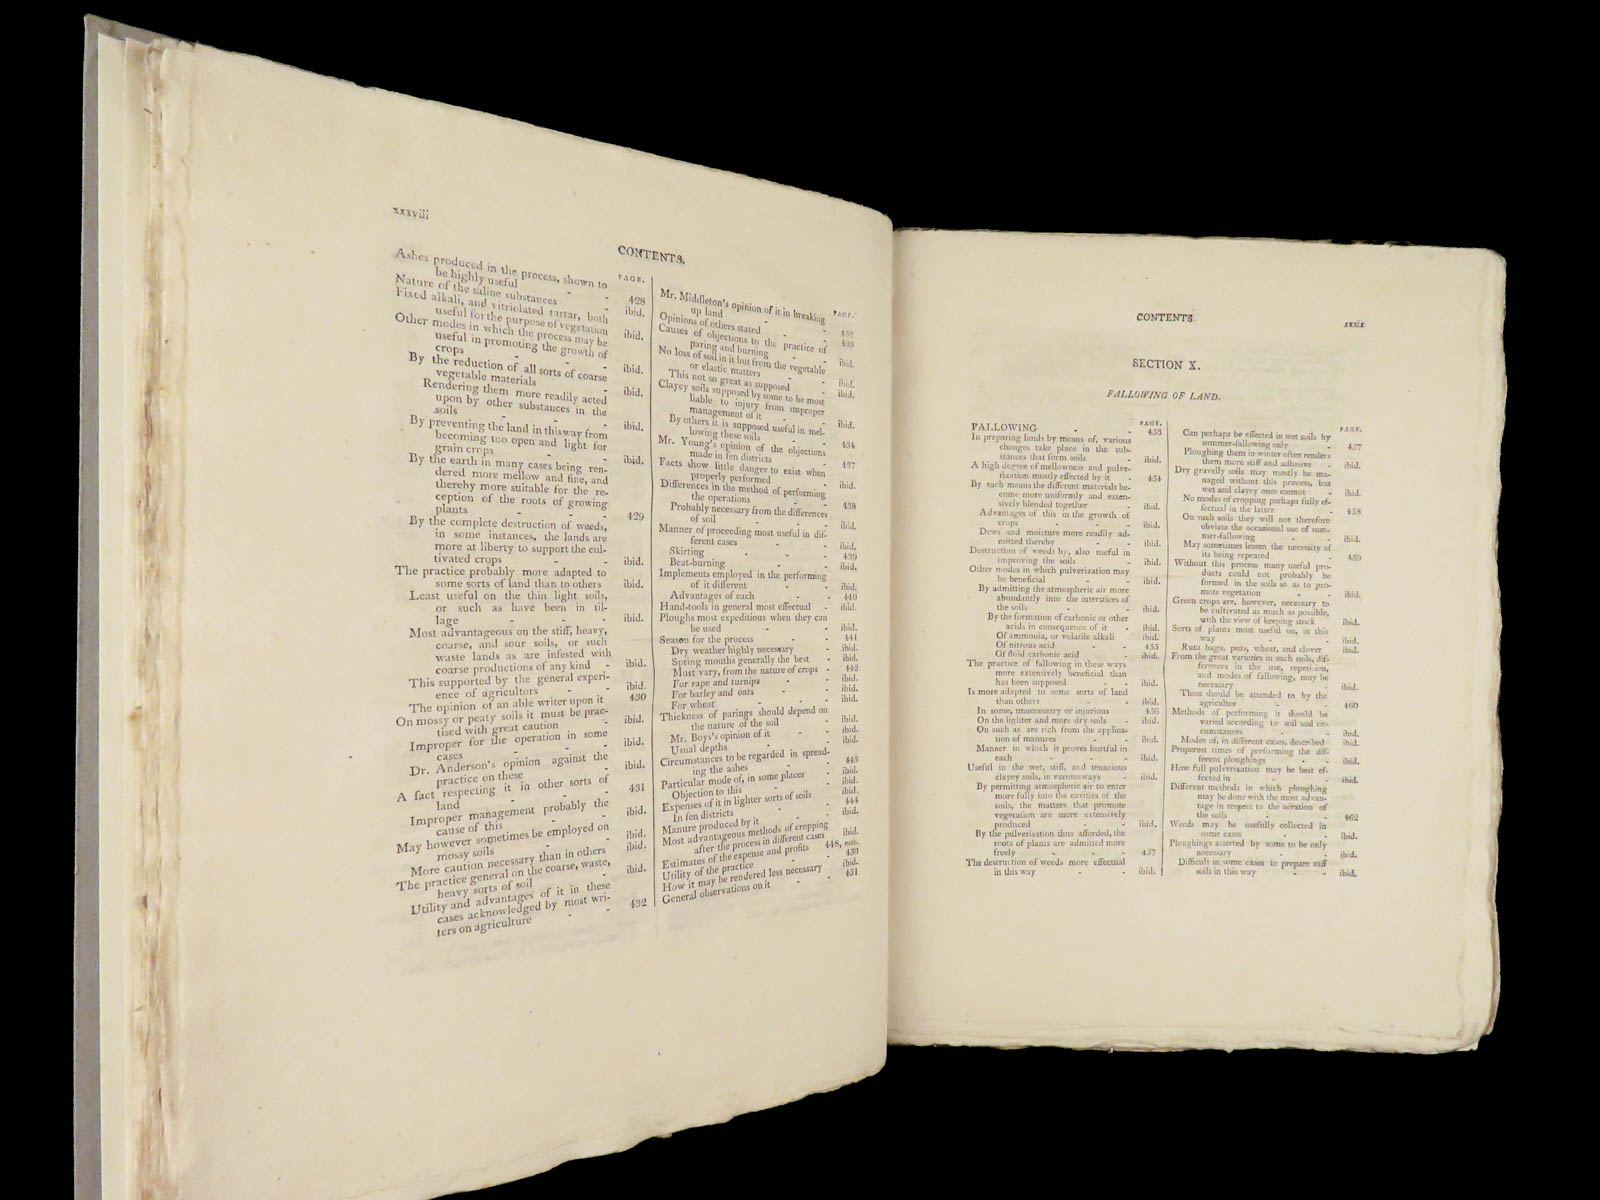 xxxviii
CONTENTS.
PAGE.
Ashes produced in the process, shown to
be highly useful - - 428
Nature of the saline substances ibid.
Fixed alkali, and vitriolated tartar, both
useful for the purpose of vegetation ibid.
Other modes in which the process may be
useful in promoting the growth of
crops - - - ibid.
By the reduction of all sorts of coarse
vegetable materials - ibid.
Rendering them more readily acted
upon by other substances in the
soils - - - ibid.
By preventing the land in this way from
becoming too open and light for
grain crops - - ibid.
By the earth in many cases being ren-
dered more mellow and fine, and
thereby more suitable for the re-
ception of the roots of growing
plants - - - 429
By the complete destruction of weeds,
in some instances, the lands are
more at liberty to support the cul-
tivated crops - - ibid.
The practice probably more adapted to
some sorts of land than to others ibid.
Least useful on the thin light soils,
or such as have been in til-
lage - - - ibid.
Most advantageous on the stiff, heavy,
coarse, and sour soils, or such
waste lands as are infested with
coarse productions of any kind - ibid.
This supported by the general experi-
ence of agricultors - - ibid.
The opinion of an able writer upon it 430
On mossy or peaty soils it must be prac-
tised with great caution - ibid.
Improper for the operation in some
cases - - - ibid.
Dr. Anderson's opinion against the
practice on these - ibid.
A fact respecting it in other sorts of
land - - - 431
Improper management probably the
cause of this - - ibid.
May however sometimes be employed on
mossy soils - - ibid.
More caution necessary than in others ibid.
The practice general on the coarse, waste,
heavy sorts of soil - ibid.
Utility and advantages of it in these
cases acknowledged by most wri-
ters on agriculture - - 432
PAGE.
Mr. Middleton's opinion of it in breaking
up land - - 432
Opinions of others stated - - 433
Causes of objections to the practice of
paring and burning - - ibid.
No loss of soil in it but from the vegetable
or elastic matters - ibid.
This not so great as supposed - ibid.
Clayey soils supposed by some to be most
liable to injury from improper
management of it - - ibid.
By others it is supposed useful in mel-
lowing these soils - - 434
Mr. Young's opinion of the objections
made in fen districts - 437
Facts show little danger to exist when
properly performed - ibid.
Differences in the method of performing
the operations - - 438
Probably necessary from the differences
of soil - - - ibid.
Manner of proceeding most useful in dif-
ferent cases - - ibid.
Skirting - - - 439
Beat-burning - - ibid.
Implements employed in the performing
of it different - - ibid.
Advantages of each - - 440
Hand-tools in general most effectual - ibid.
Ploughs most expeditious when they can
be used - - ibid.
Season for the process - - 441
Dry weather highly necessary - ibid.
Spring months generally the best - ibid.
Must vary, from the nature of crops - 442
For rape and turnips - - ibid.
For barley and oats - - ibid.
For wheat - - - ibid.
Thickness of parings should depend on
the nature of the soil - ibid.
Mr. Boys's opinion of it - - ibid.
Usual depths - - ibid.
Circumstances to be regarded in spread-
ing the ashes - - 443
Particular mode of, in some places - ibid.
Objection to this - - ibid.
Expenses of it in lighter sorts of soils ibid.
In fen districts - - 444
Manure produced by it - - ibid.
Most advantageous methods of cropping
after the process in different cases ibid.
Estimates of the expense and profits 448, note.
Utility of the practice - - 450
How it may be rendered less necessary ibid.
General observations on it - - 451
CONTENTS
xxxix
SECTION X.
FALLOWING OF LAND.
PAGE.
FALLOWING - - 453
In preparing lands by means of, various
changes take place in the sub-
stances that form soils - ibid.
A high degree of mellowness and pulve-
rization mostly effected by it - 454
By such means the different materials be-
come more uniformly and exten-
sively blended together - ibid.
Advantages of this in the growth of
crops - - - ibid.
Dews and moisture more readily ad-
mitted thereby - - ibid.
Destruction of weeds by, also useful in
improving the soils - ibid.
Other modes in which pulverization may
be beneficial - - ibid.
By admitting the atmospheric air more
abundantly into the interstices of
the soils - - ibid.
By the formation of carbonic or other
acids in consequence of it - ibid.
Of ammonia, or volatile alkali ibid.
Of nitrous acid - - 455
Of fluid carbonic acid - ibid.
The practice of fallowing in these ways
more extensively beneficial than
has been supposed - - ibid.
Is more adapted to some sorts of land
than others - - ibid.
In some, unnecessary or injurious 456
On the lighter and more dry soils - ibid.
On such as are rich from the applica-
tion of manures - - ibid.
Manner in which it proves hurtful in
each - - - ibid.
Useful in the wet, stiff, and tenacious
clayey soils, in various ways - ibid.
By permitting atmospheric air to enter
more fully into the cavities of the
soils, the matters that promote
vegetation are more extensively
produced - - ibid.
By the pulverisation thus afforded, the
roots of plants are admitted more
freely - - - 457
The destruction of weeds more effectual
in this way - - ibid.
PAGE.
Can perhaps be effected in wet soils by
summer-fallowing only - 457
Ploughing them in winter often renders
them more stiff and adhesive - ibid.
Dry gravelly soils may mostly be ma-
naged without this process, but
wet and clayey ones cannot - ibid.
No modes of cropping perhaps fully ef-
fectual in the latter - 458
On such soils they will not therefore
obviate the occasional use of sum-
mer-fallowing - - ibid.
May sometimes lessen the necessity of
its being repeated - 459
Without this process many useful pro-
ducts could not probably be
formed in the soils so as to pro-
mote vegetation - - ibid.
Green crops are, however, necessary to
be cultivated as much as possible,
with the view of keeping stock ibid.
Sorts of plants most useful on, in this
way - - - ibid.
Ruta baga, peas, wheat, and clover ibid.
From the great varieties in such soils, dif-
ferences in the use, repetition,
and modes of fallowing, may be
necessary - - ibid.
These should be attended to by the
agricultor - - 460
Methods of performing it should be
varied according to soil and cir-
cumstances - - ibid.
Modes of, in different cases, described ibid.
Properest times of performing the dif-
ferent ploughings - - ibid.
How full pulverization may be best ef-
fected in - - ibid.
Different methods in which ploughing
may be done with the most advan-
tage in respect to the aeration of
the soils - - 462
Weeds may be usefully collected in
some cases - - ibid.
Ploughings asserted by some to be only
necessary - - ibid.
Difficult in some cases to prepare stiff
soils in this way - - ibid.